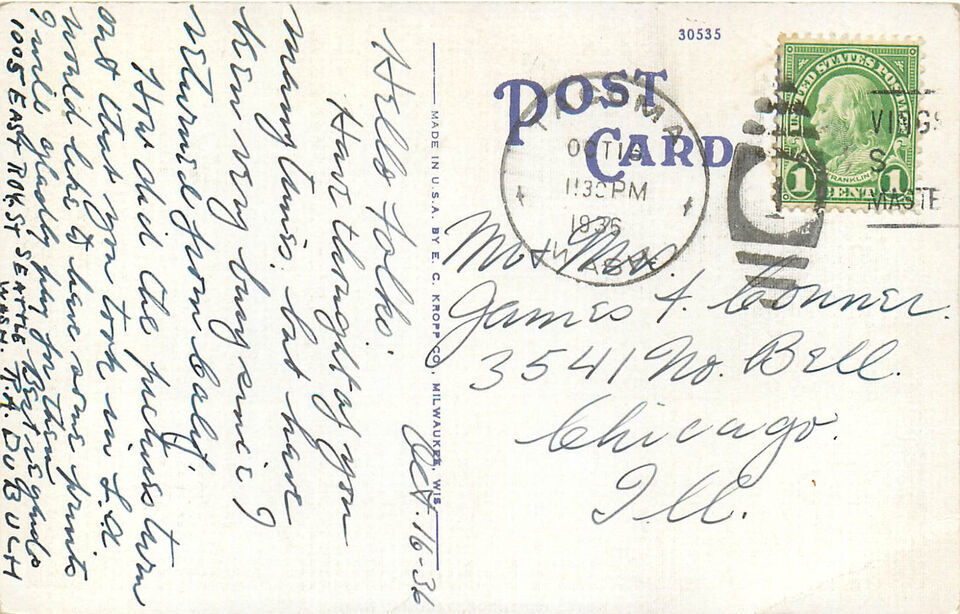 30535
POST
CARD
TACOMA
OCT 16
11 30 PM
1936
WASH.
UNITED STATES POSTAGE
FRANKLIN
1 CENT 1
MADE IN U.S.A. BY E. C. KROPP CO., MILWAUKEE, WIS.
Oct. 16-36
Hello Folks.
Have thought of you
many times, but have
been very busy since I
returned from Calif.
How did the pictures turn
out that you took in L.A
Would like to have some prints
I will gladly pay for them
Best regards
1005 EAST ROY ST SEATTLE
WASH. T.A.
Mr Mrs.
James A. Conner.
3541 No. Bell.
Chicago.
Ill.